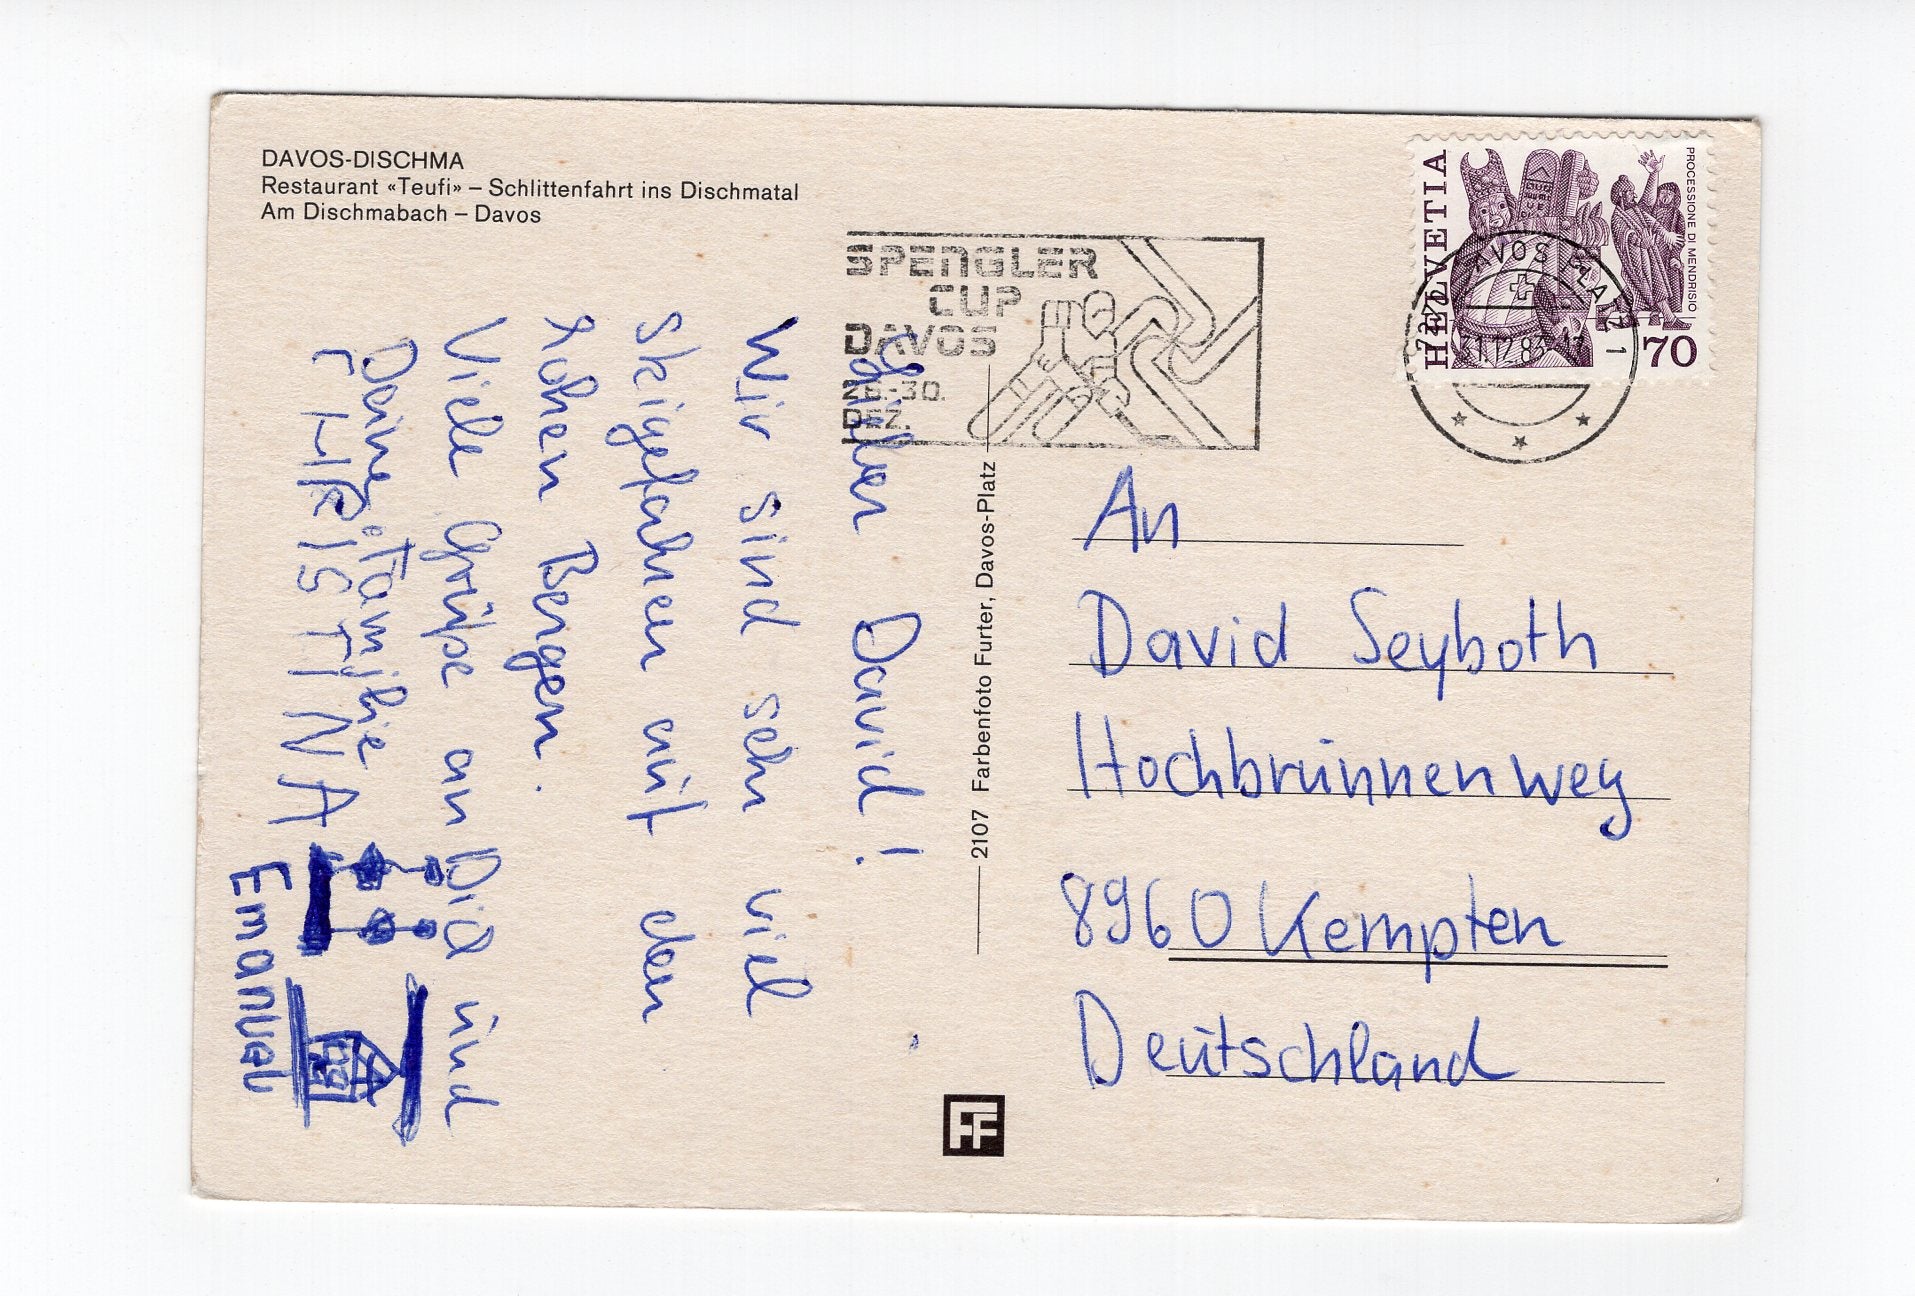 DAVOS-DISCHMA
Restaurant «Teufi» – Schlittenfahrt ins Dischmatal
Am Dischmabach – Davos
SPENGLER
CUP
DAVOS
26.-30.
DEZ.
HELVETIA
PROCESSIONE DI MENDRISIO
70
DAVOS PLATZ 1
31.12.83-13
Lieber David!
Wir sind sehr viel
Skigefahren auf den
hohen Bergen.
Viele Grüße an Dich und
Deine Familie
CHRISTINA
Emanuel
2107 Farbenfoto Furter, Davos-Platz
An
David Seyboth
Hochbrunnenweg
8960 Kempten
Deutschland
FF